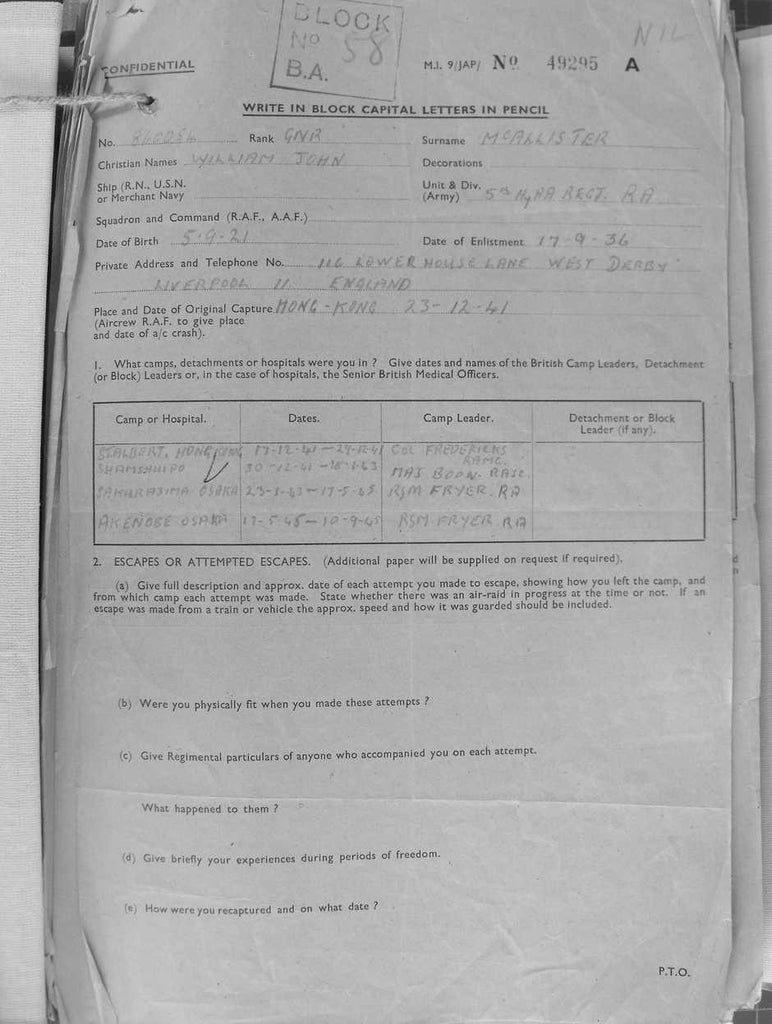 BLOCK
No 58
B.A.
NIL
CONFIDENTIAL
M.I. 9/JAP/ No. 49295 A
WRITE IN BLOCK CAPITAL LETTERS IN PENCIL
No. Rank GNR Surname McALLISTER
Christian Names WILLIAM JOHN Decorations
Ship (R.N., U.S.N. or Merchant Navy
Unit & Div. (Army) 5th Hy AA REGT. RA
Squadron and Command (R.A.F., A.A.F.)
Date of Birth 5.9.21 Date of Enlistment 17-9-36
Private Address and Telephone No. 116 LOWER HOUSE LANE WEST DERBY
LIVERPOOL 11 ENGLAND
Place and Date of Original Capture HONG-KONG 23-12-41
(Aircrew R.A.F. to give place
and date of a/c crash).
1. What camps, detachments or hospitals were you in ? Give dates and names of the British Camp Leaders, Detachment
(or Block) Leaders or, in the case of hospitals, the Senior British Medical Officers.
Camp or Hospital. Dates. Camp Leader. Detachment or Block
Leader (if any).
ST ALBERT, HONG KONG 17-12-41 - 29-12-41 COL FREDERICKS RAMC
SHAMSHUIPO 30-12-41 - 18-1-43 MAJ BOON. RASC
SAKURAJIMA OSAKA 23-1-43 - 17-5-45 RSM FRYER. RA
AKENOBE OSAKA 17-5-45 - 10-9-45 RSM FRYER RA
2. ESCAPES OR ATTEMPTED ESCAPES. (Additional paper will be supplied on request if required).
(a) Give full description and approx. date of each attempt you made to escape, showing how you left the camp, and
from which camp each attempt was made. State whether there was an air-raid in progress at the time or not. If an
escape was made from a train or vehicle the approx. speed and how it was guarded should be included.
(b) Were you physically fit when you made these attempts ?
(c) Give Regimental particulars of anyone who accompanied you on each attempt.
What happened to them ?
(d) Give briefly your experiences during periods of freedom.
(e) How were you recaptured and on what date ?
P.T.O.